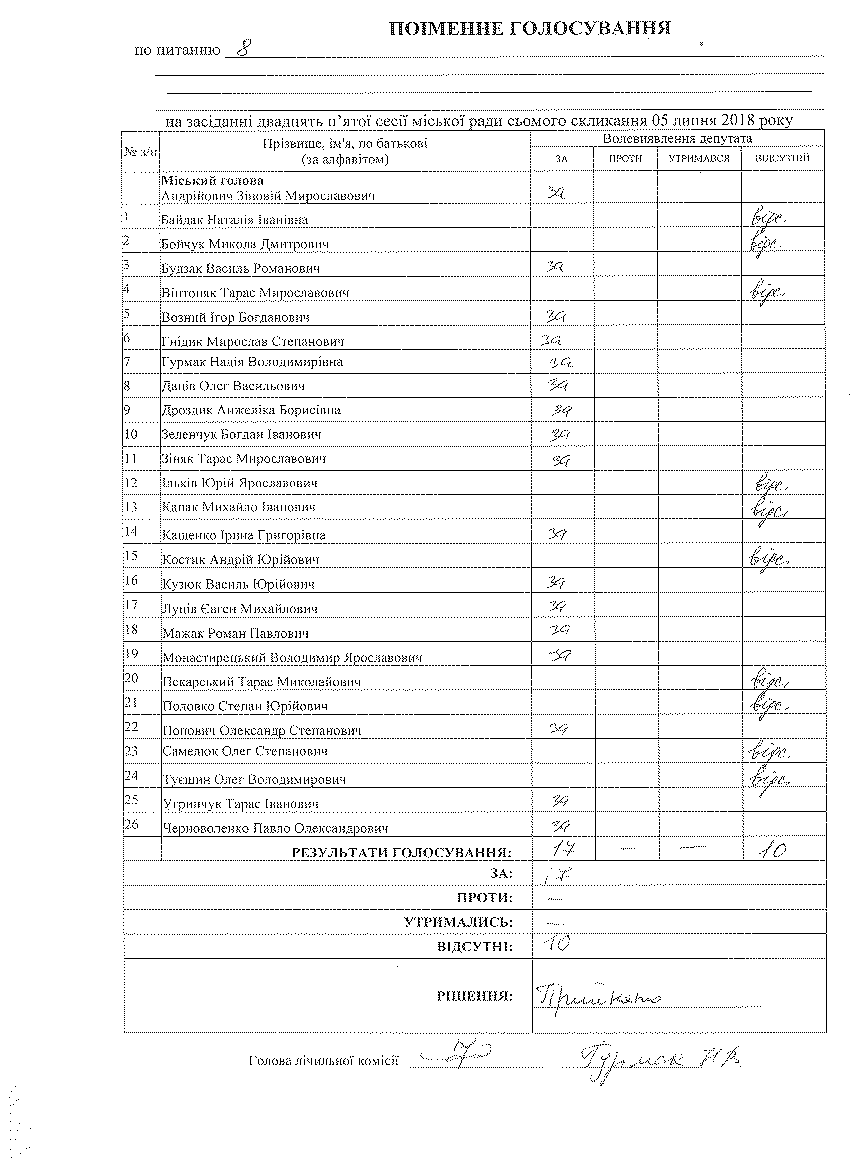 ПОІМЕННЕ ГОЛОСУВАННЯ
по питанню 8
на засіданні двадцять п'ятої сесії міської ради сьомого скликання 05 липня 2018 року
№ з/п Прізвище, ім'я, по батькові (за алфавітом) Волевиявлення депутата
ЗА ПРОТИ УТРИМАВСЯ ВІДСУТНІЙ
Міський голова
Андрійович Зіновій Мирославович за
1 Байдак Наталія Іванівна відс.
2 Бойчук Микола Дмитрович відс.
3 Будзак Василь Романович за
4 Вінтоняк Тарас Мирославович відс.
5 Возний Ігор Богданович за
6 Гнідик Мирослав Степанович за
7 Гурмак Надія Володимирівна за
8 Даців Олег Васильович за
9 Дроздик Анжеліка Борисівна за
10 Зеленчук Богдан Іванович за
11 Зіняк Тарас Мирославович за
12 Ільків Юрій Ярославович відс.
13 Капак Михайло Іванович відс.
14 Кащенко Ірина Григорівна за
15 Костик Андрій Юрійович відс.
16 Кузюк Василь Юрійович за
17 Луців Євген Михайлович за
18 Мажак Роман Павлович за
19 Монастирецький Володимир Ярославович за
20 Пекарський Тарас Миколайович відс.
21 Половко Степан Юрійович відс.
22 Попович Олександр Степанович за
23 Самелюк Олег Степанович відс.
24 Туєшин Олег Володимирович відс.
25 Угринчук Тарас Іванович за
26 Черноволенко Павло Олександрович за
РЕЗУЛЬТАТИ ГОЛОСУВАННЯ: 17 — — 10
ЗА: 17
ПРОТИ: —
УТРИМАЛИСЬ: —
ВІДСУТНІ: 10
РІШЕННЯ: Прийнято
Голова лічильної комісії Гурмак Н.В.